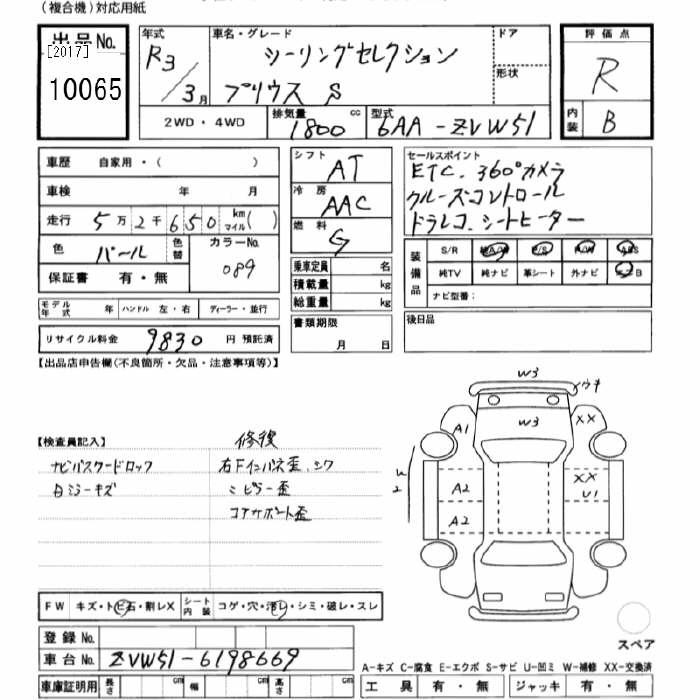 (複合機)対応用紙
出品No.
[2017]
10065
年式
R3/3月
車名・グレード
シーリングセレクション
プリウス S
ドア
形状
評価点
R
内装
B
2WD・4WD
排気量
1800
cc
型式
6AA-ZVW51
車歴 自家用・( )
車検 年 月
走行 5万2千650 km マイル( )
色 パール 色替
カラーNo.
089
保証書 有・無
モデル年式 年 ハンドル 左・右 ディーラー・並行
リサイクル料金 9830 円 預託済
シフト
AT
冷房
AAC
燃料
G
乗車定員 名
積載量 kg
総重量 kg
書類期限
月 日
セールスポイント
ETC、360°カメラ
クルーズコントロール
ドラレコ、シートヒーター
装備品
S/R 純A/W P/S P/W ABS
純TV 純ナビ 革シート 外ナビ エアB
ナビ型番:
後日品
【出品店申告欄(不良箇所・欠品・注意事項等)】
【検査員記入】
修復
ナビパスワードロック
右Fインパネ歪、シワ
ミピラー歪
コアサポート歪
W3
W3
A1
XX
A2
XX
U1
A2
W2
FW キズ・トビ石・割レX
シート内装
コゲ・穴・汚レ・シミ・破レ・スレ
登録No.
車台No. ZVW51-6198669
車庫証明用 長さ cm 幅 cm 高さ cm
スペア
A-キズ C-腐食 E-エクボ S-サビ U-凹ミ W-補修 XX-交換済
工具 有・無 ジャッキ 有・無